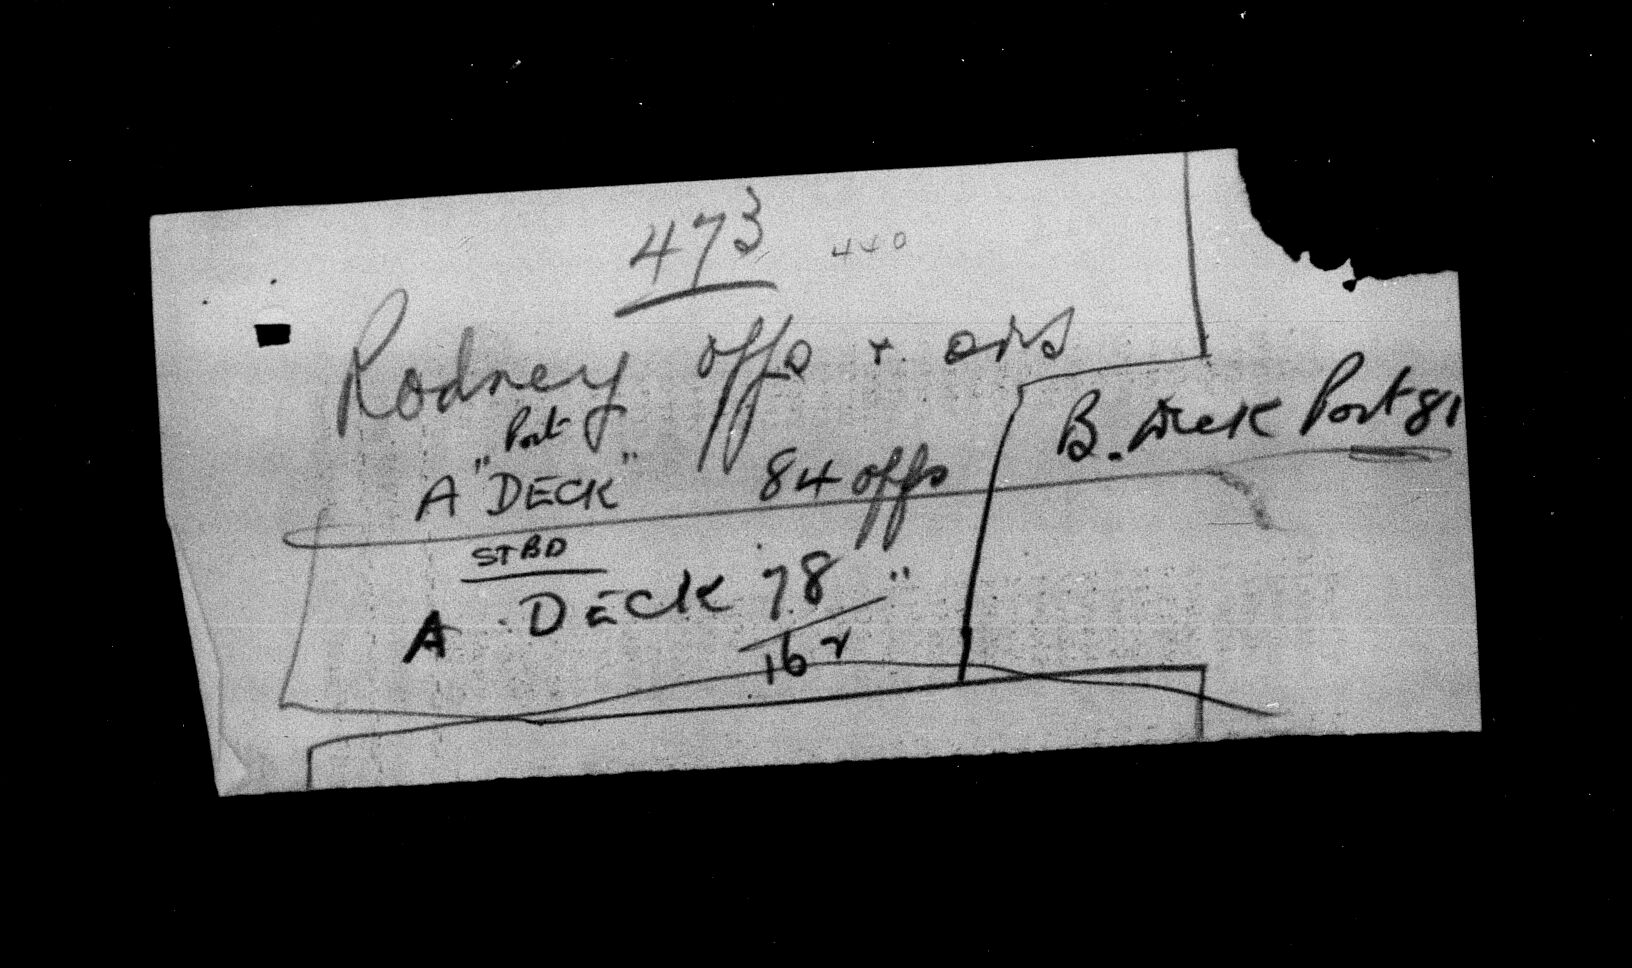 473 440
Rodney offs + ors
B. Deck Port 81
Port
A "DECK" 84 offs
STBD
A. DECK 78 "
162